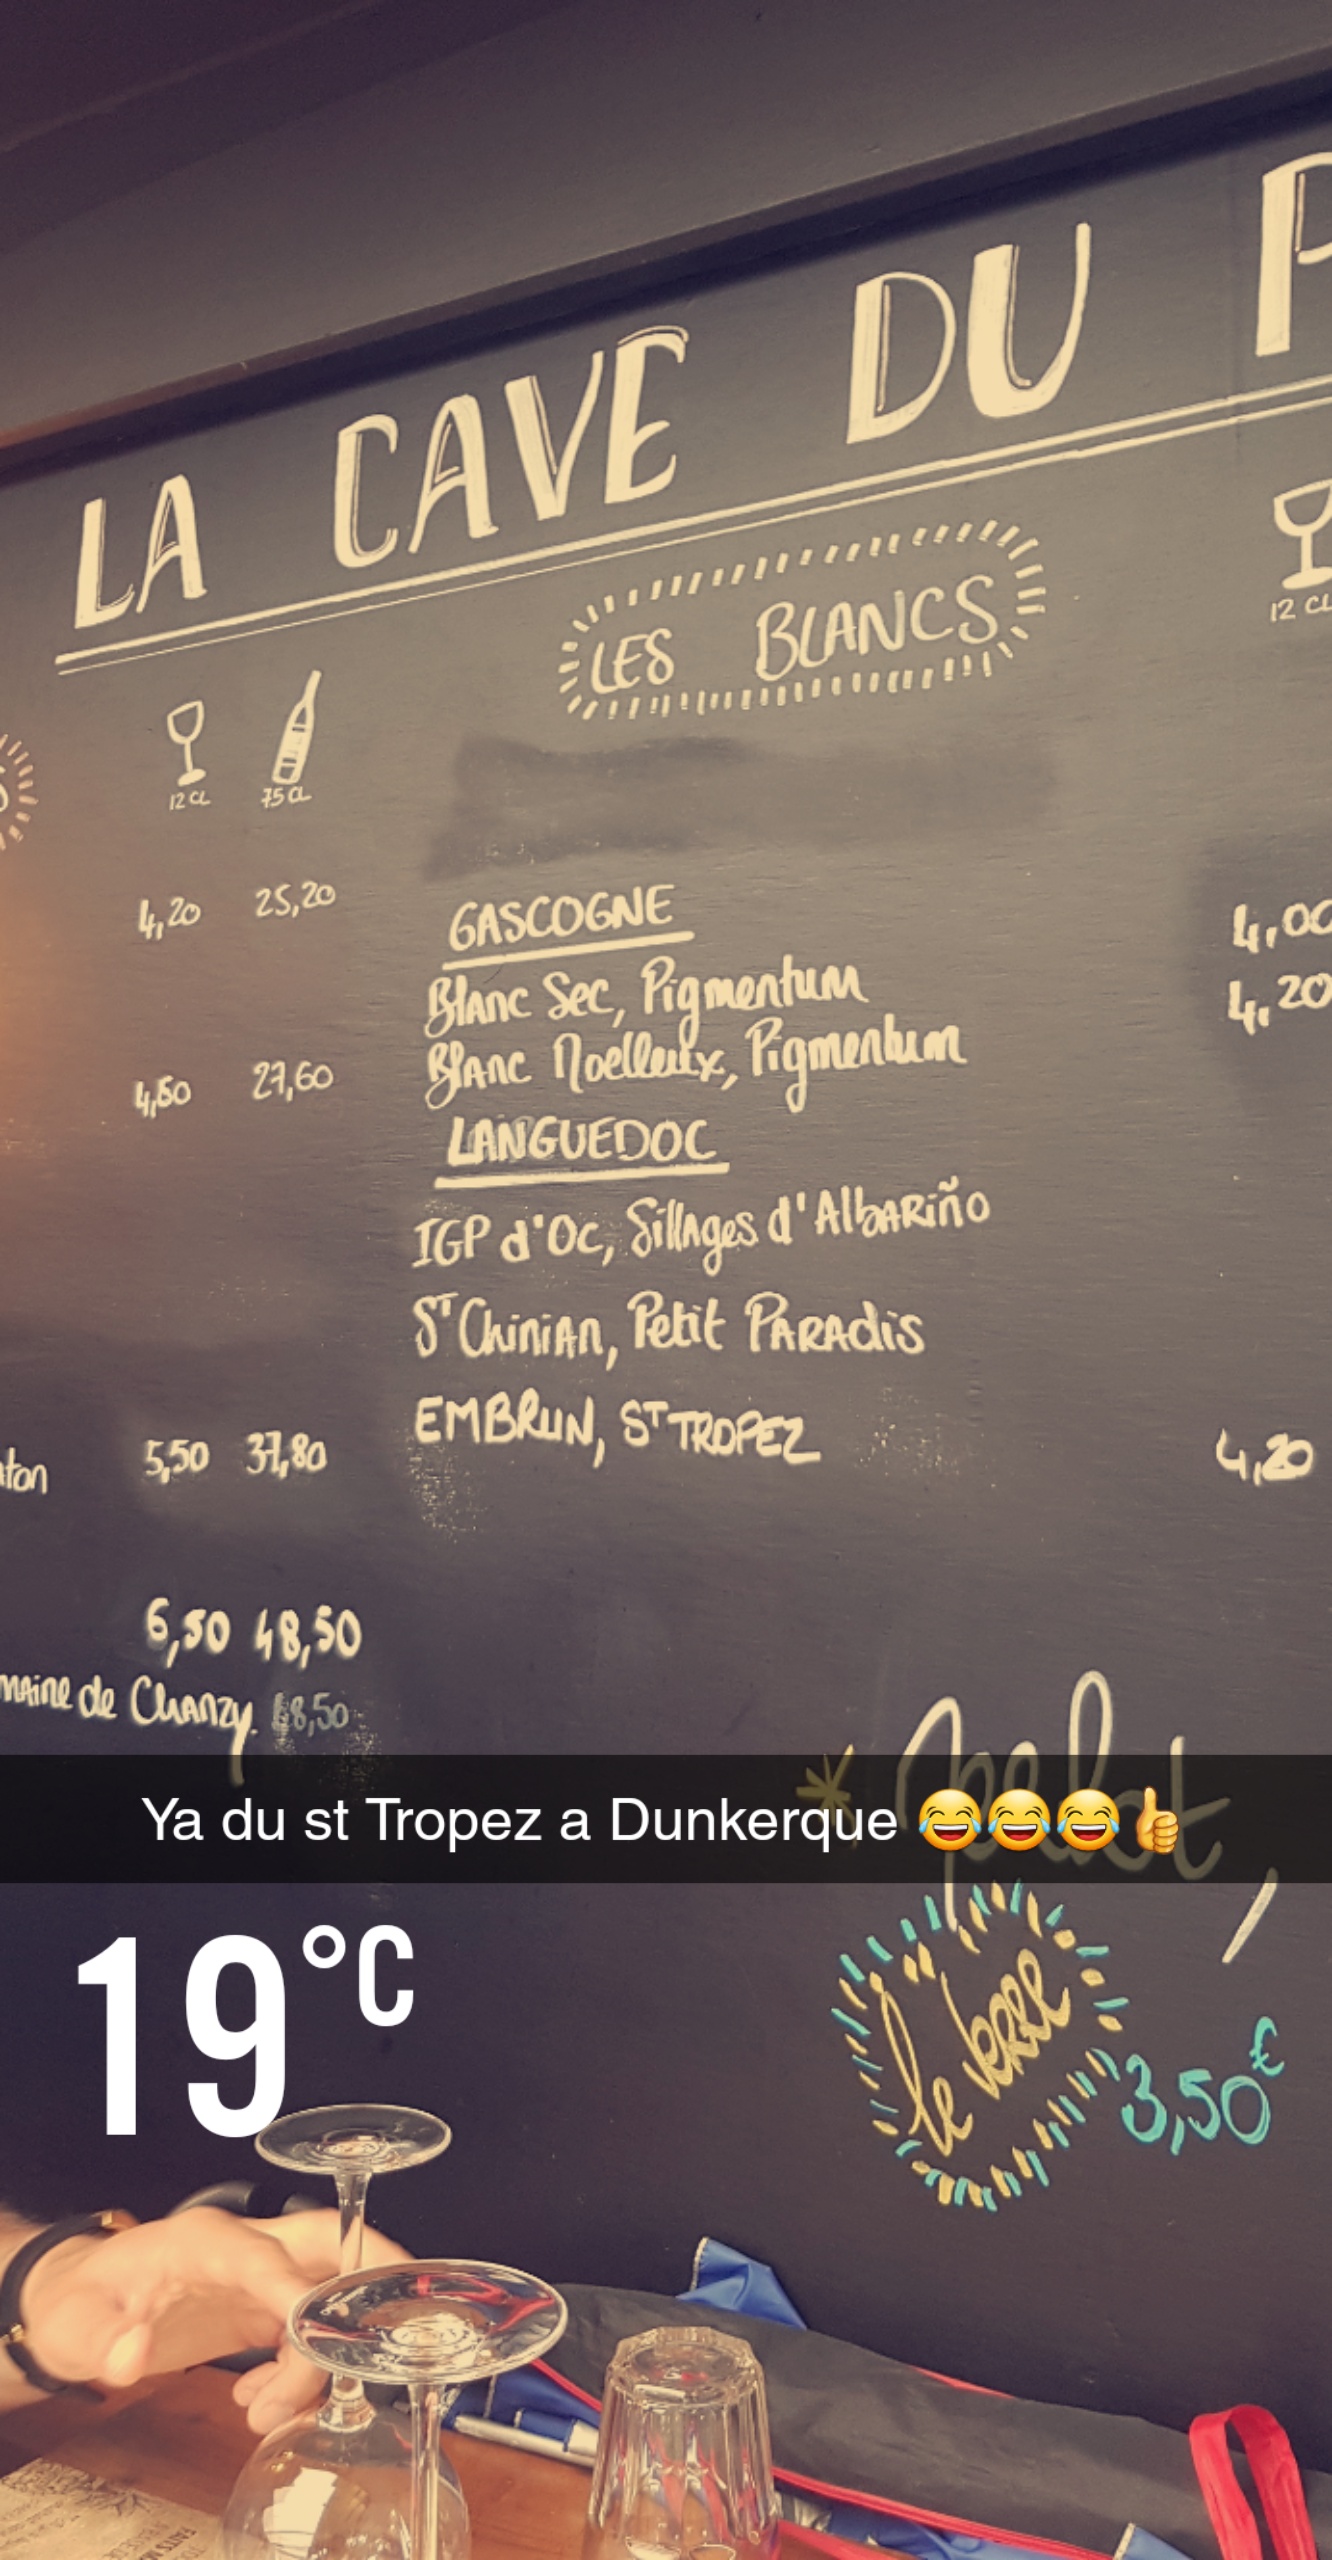 LA CAVE DU P
LES BLANCS
12 CL 75 CL
12 CL
4,20 25,20
GASCOGNE
Blanc Sec, Pigmentum 4,00
Blanc Moelleux, Pigmentum 4,20
4,60 27,60
LANGUEDOC
IGP d'Oc, Sillages d'Albariño
St Chinian, Petit Paradis
EMBRUN, ST TROPEZ 4,20
ton 5,50 37,80
6,50 48,50
maine de Chanzy. 68,50
Ya du st Tropez a Dunkerque 😂😂😂👍
19°C
le verre
3,50€